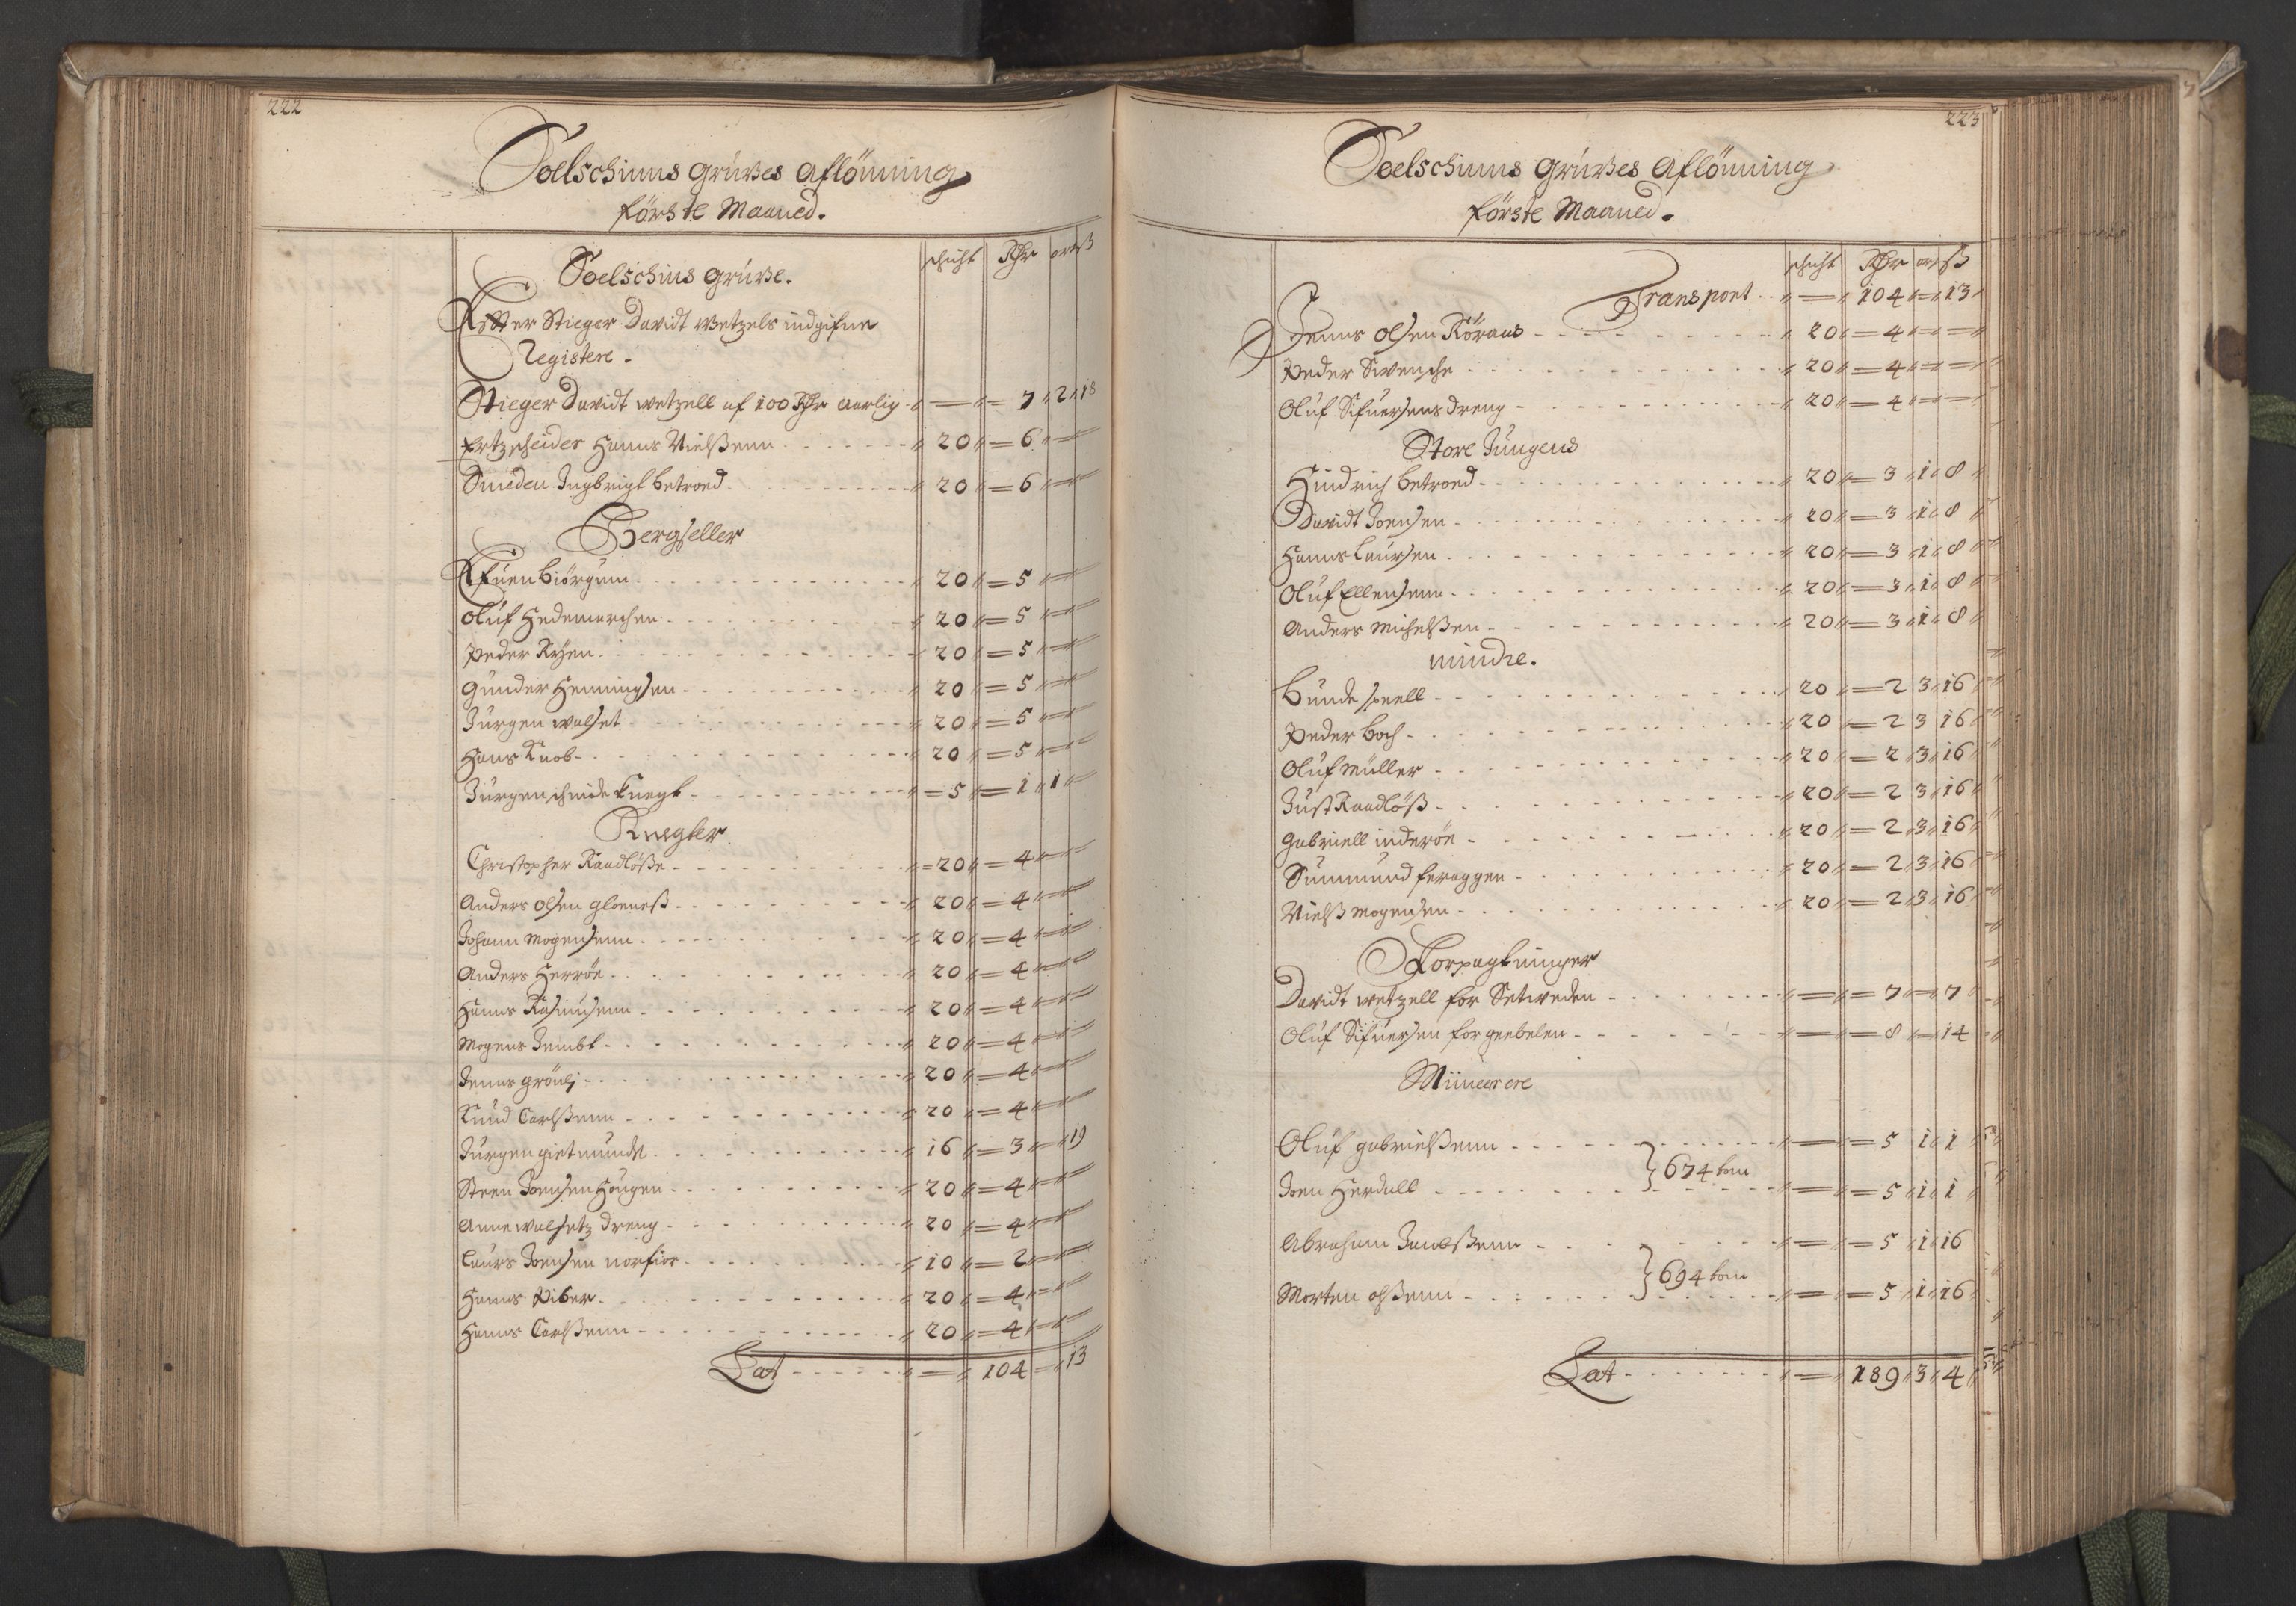 222
Soelschinns Grufves Aflönning
förste Maaned.
schicht Rdr ort ß
Soelschins Grufve.
Efter Stieger Davidt Wetzels indgifne
Registere.
Stieger Davidt Wetzell af 100 Rdr aarlig - 7 2 18
Ertzscheider Hanns Nielßenn 20 6
Smeden Ingbrigt Betroed 20 6
Bergseller
Efuen Biörgum 20 5
Oluf Hedemarchen 20 5
Peder Ryen 20 5
Gunder Henningsen 20 5
Jürgen Walset 20 5
Hans Knob 20 5
Jürgen Schmide Knegt 5 1 1
Knegter
Christopher Raadlöße 20 4
Anders Olsen Gloeneß 20 4
Johann Mogensenn 20 4
Anders Herröe 20 4
Hanns Rasmusenn 20 4
Mogens Jembt 20 4
Jenns Grönli 20 4
Knud Carlßenn 20 4
Jürgen Gietmundt 16 3 - 19
Steen Joensen Hougen 20 4
Anne Walsetz Dreng 20 4
Laurs Joensen Norfior 10 2
Hanns Piber 20 4
Hanns Carlßenn 20 4
Lat 104 - 13
223
Soelschinns Grufves Aflönning
förste Maaned.
schicht Rdr ort ß
Transport 104 - 13
Jenns Olsen Röraas 20 4
Peder Swensche 20 4
Oluf Sifuersens Dreng 20 4
Store Jungens
Hindrich Betroed 20 3 1 8
Davidt Joensen 20 3 1 8
Hanns Laursen 20 3 1 8
Oluf Ellensenn 20 3 1 8
Anders Michelßen 20 3 1 8
mindre.
Bunde Spell 20 2 3 16
Peder Boch 20 2 3 16
Oluf Müller 20 2 3 16
Just Raadlöß 20 2 3 16
Gabriell Inderöe 20 2 3 16
Summund Feraggen 20 2 3 16
Nielß Mogensen 20 2 3 16
Forpagtninger
Davidt Wetzell for Setweden 7 - 7
Oluf Sifuersen for Geebelen 8 - 14
Miineerere
Oluf Gabrielßenn 5 1 1
} 674 ton
Joen Herdall 5 1 1
Abraham Jacobßenn 5 1 16
} 694 ton
Morten Olßenn 5 1 16
Lat 189 3 4